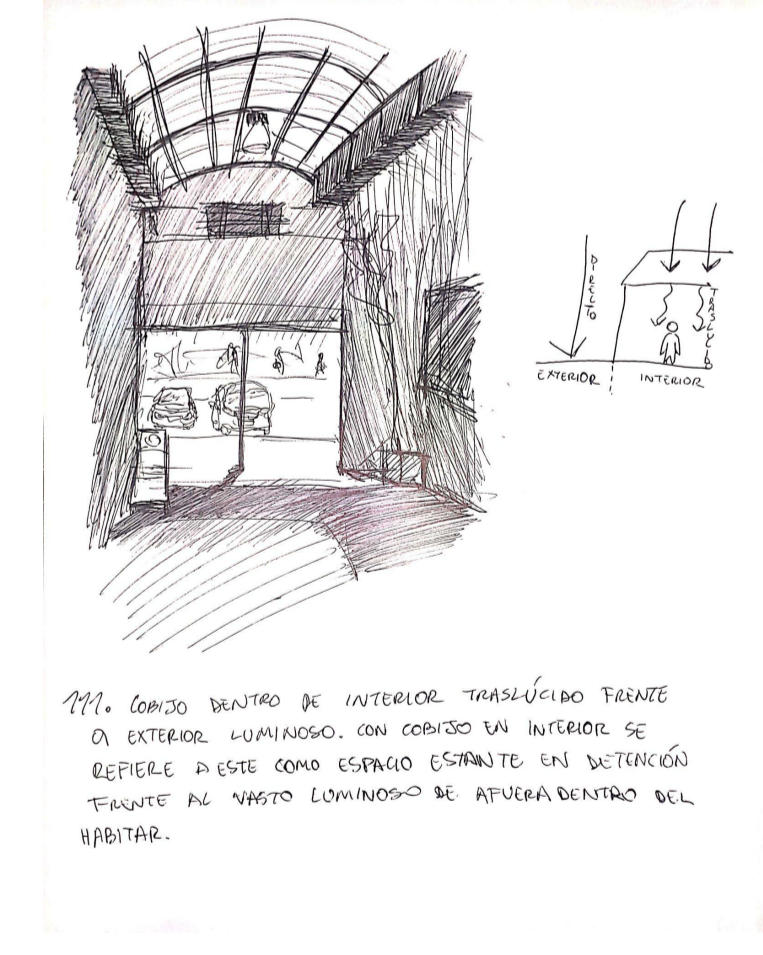 DIRECTO
TRASLUCIDO
EXTERIOR
INTERIOR
111. COBIJO DENTRO DE INTERIOR TRASLÚCIDO FRENTE
A EXTERIOR LUMINOSO. CON COBIJO EN INTERIOR SE
REFIERE A ESTE COMO ESPACIO ESTANTE EN DETENCIÓN
FRENTE AL VASTO LUMINOSO DE AFUERA DENTRO DEL
HABITAR.